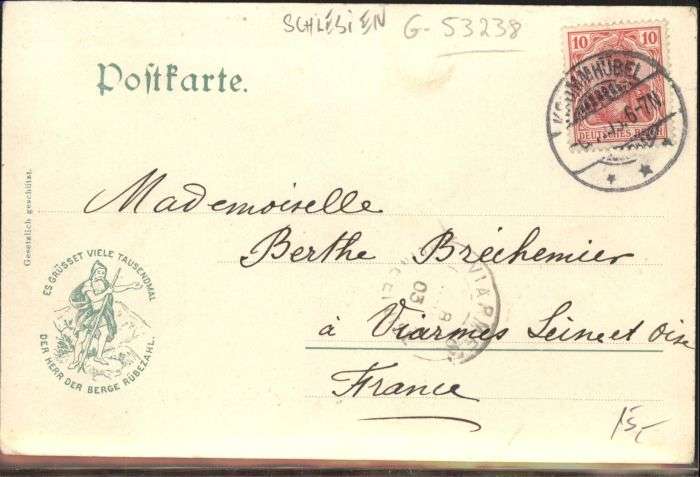 SCHLESIEN G-53238
Postkarte.
10 10
DEUTSCHES REICH
KRUMMHÜBEL
6-7N
Gesetzlich geschützt.
Mademoiselle
Berthe Bréchemier
à Viarmes Seine et Oise
France
ES GRÜSSET VIELE TAUSENDMAL
DER HERR DER BERGE RÜBEZAHL.
03
15,-